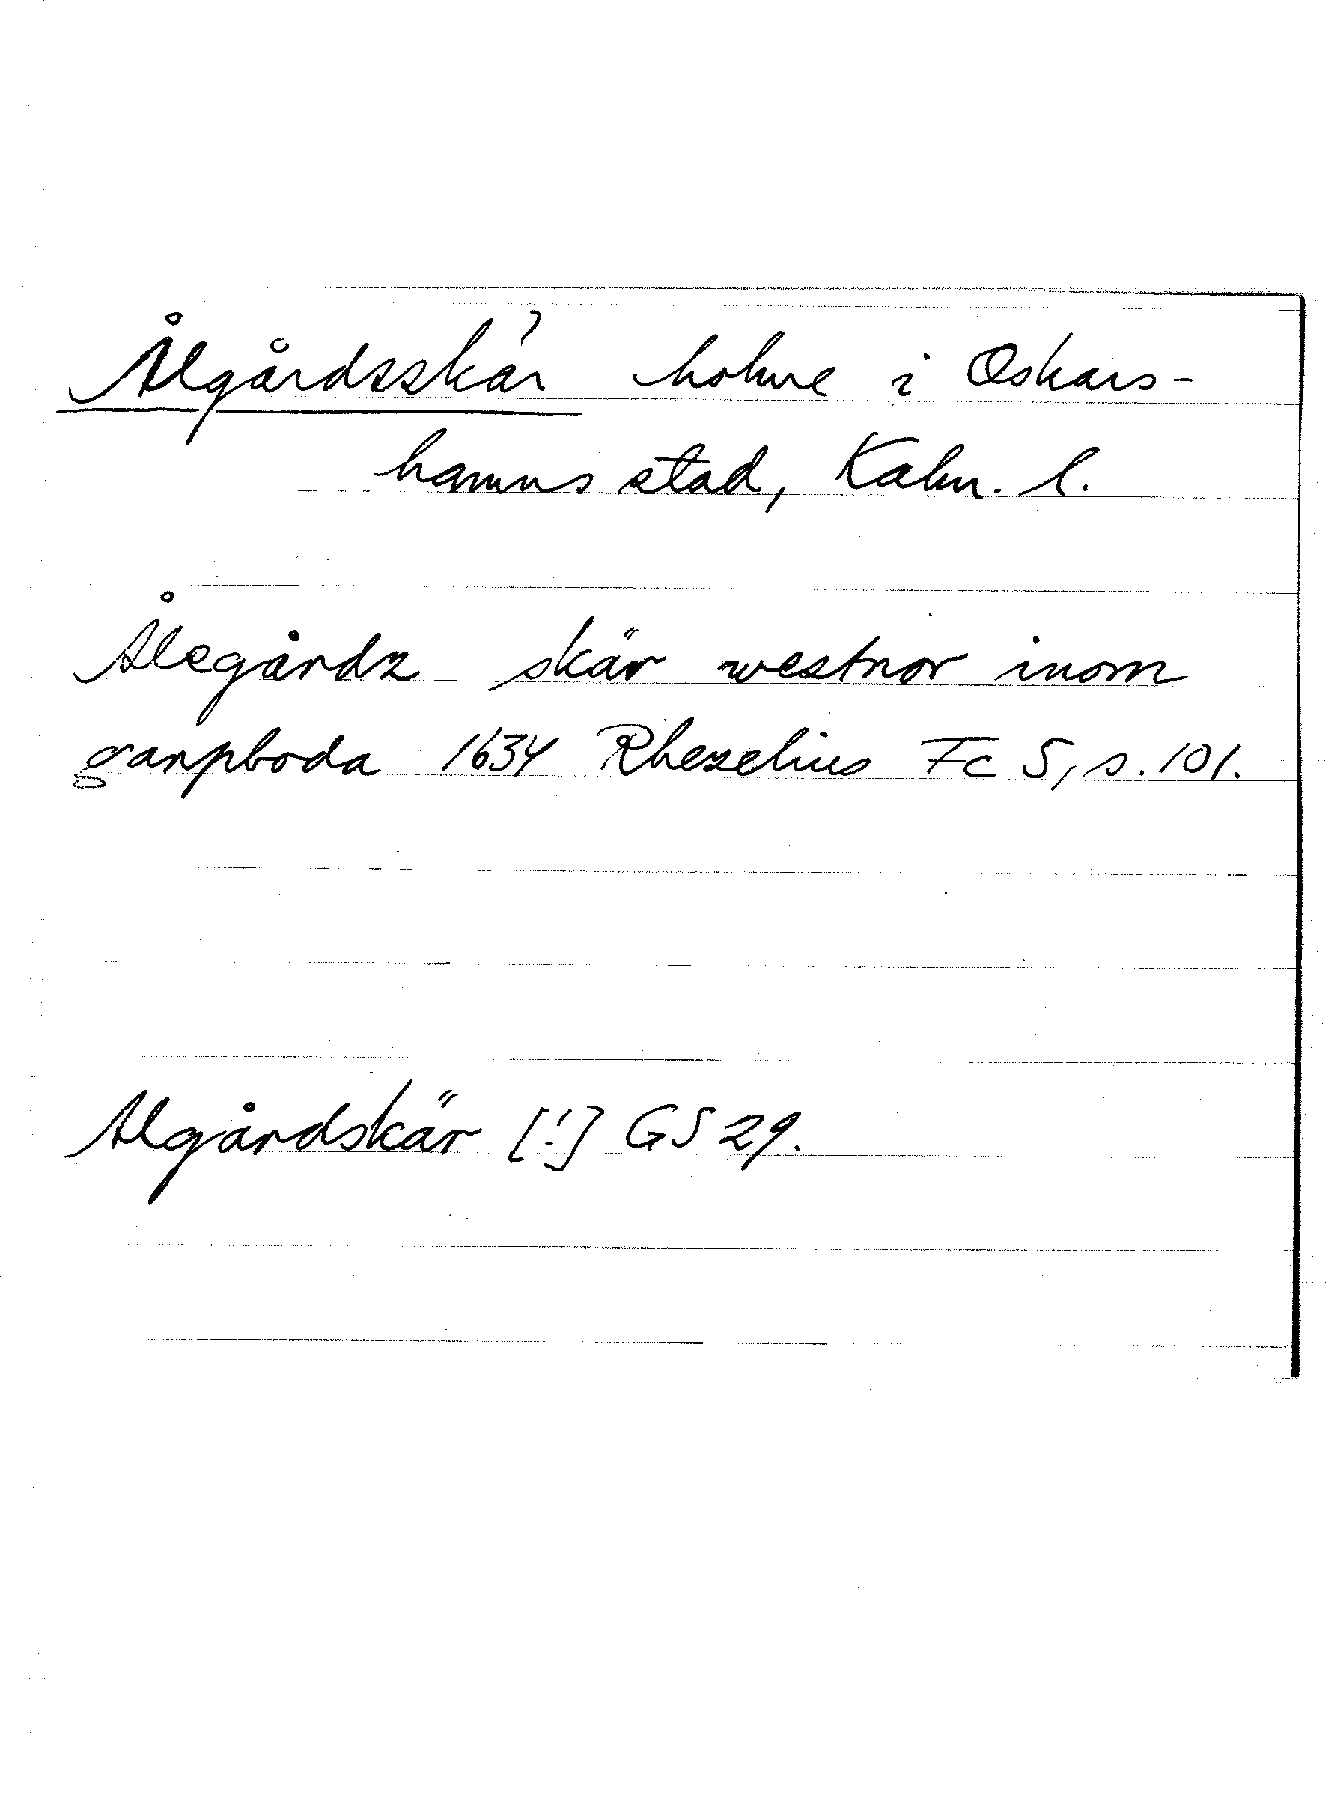 Ålgårdsskär holme i Oskars-
hamns stad, Kalm. l.
Ålegårdz skär westnor inom
garpboda 1634 Rhezelius Fc 5, s. 101.
Algårdskär [!] GS 29.